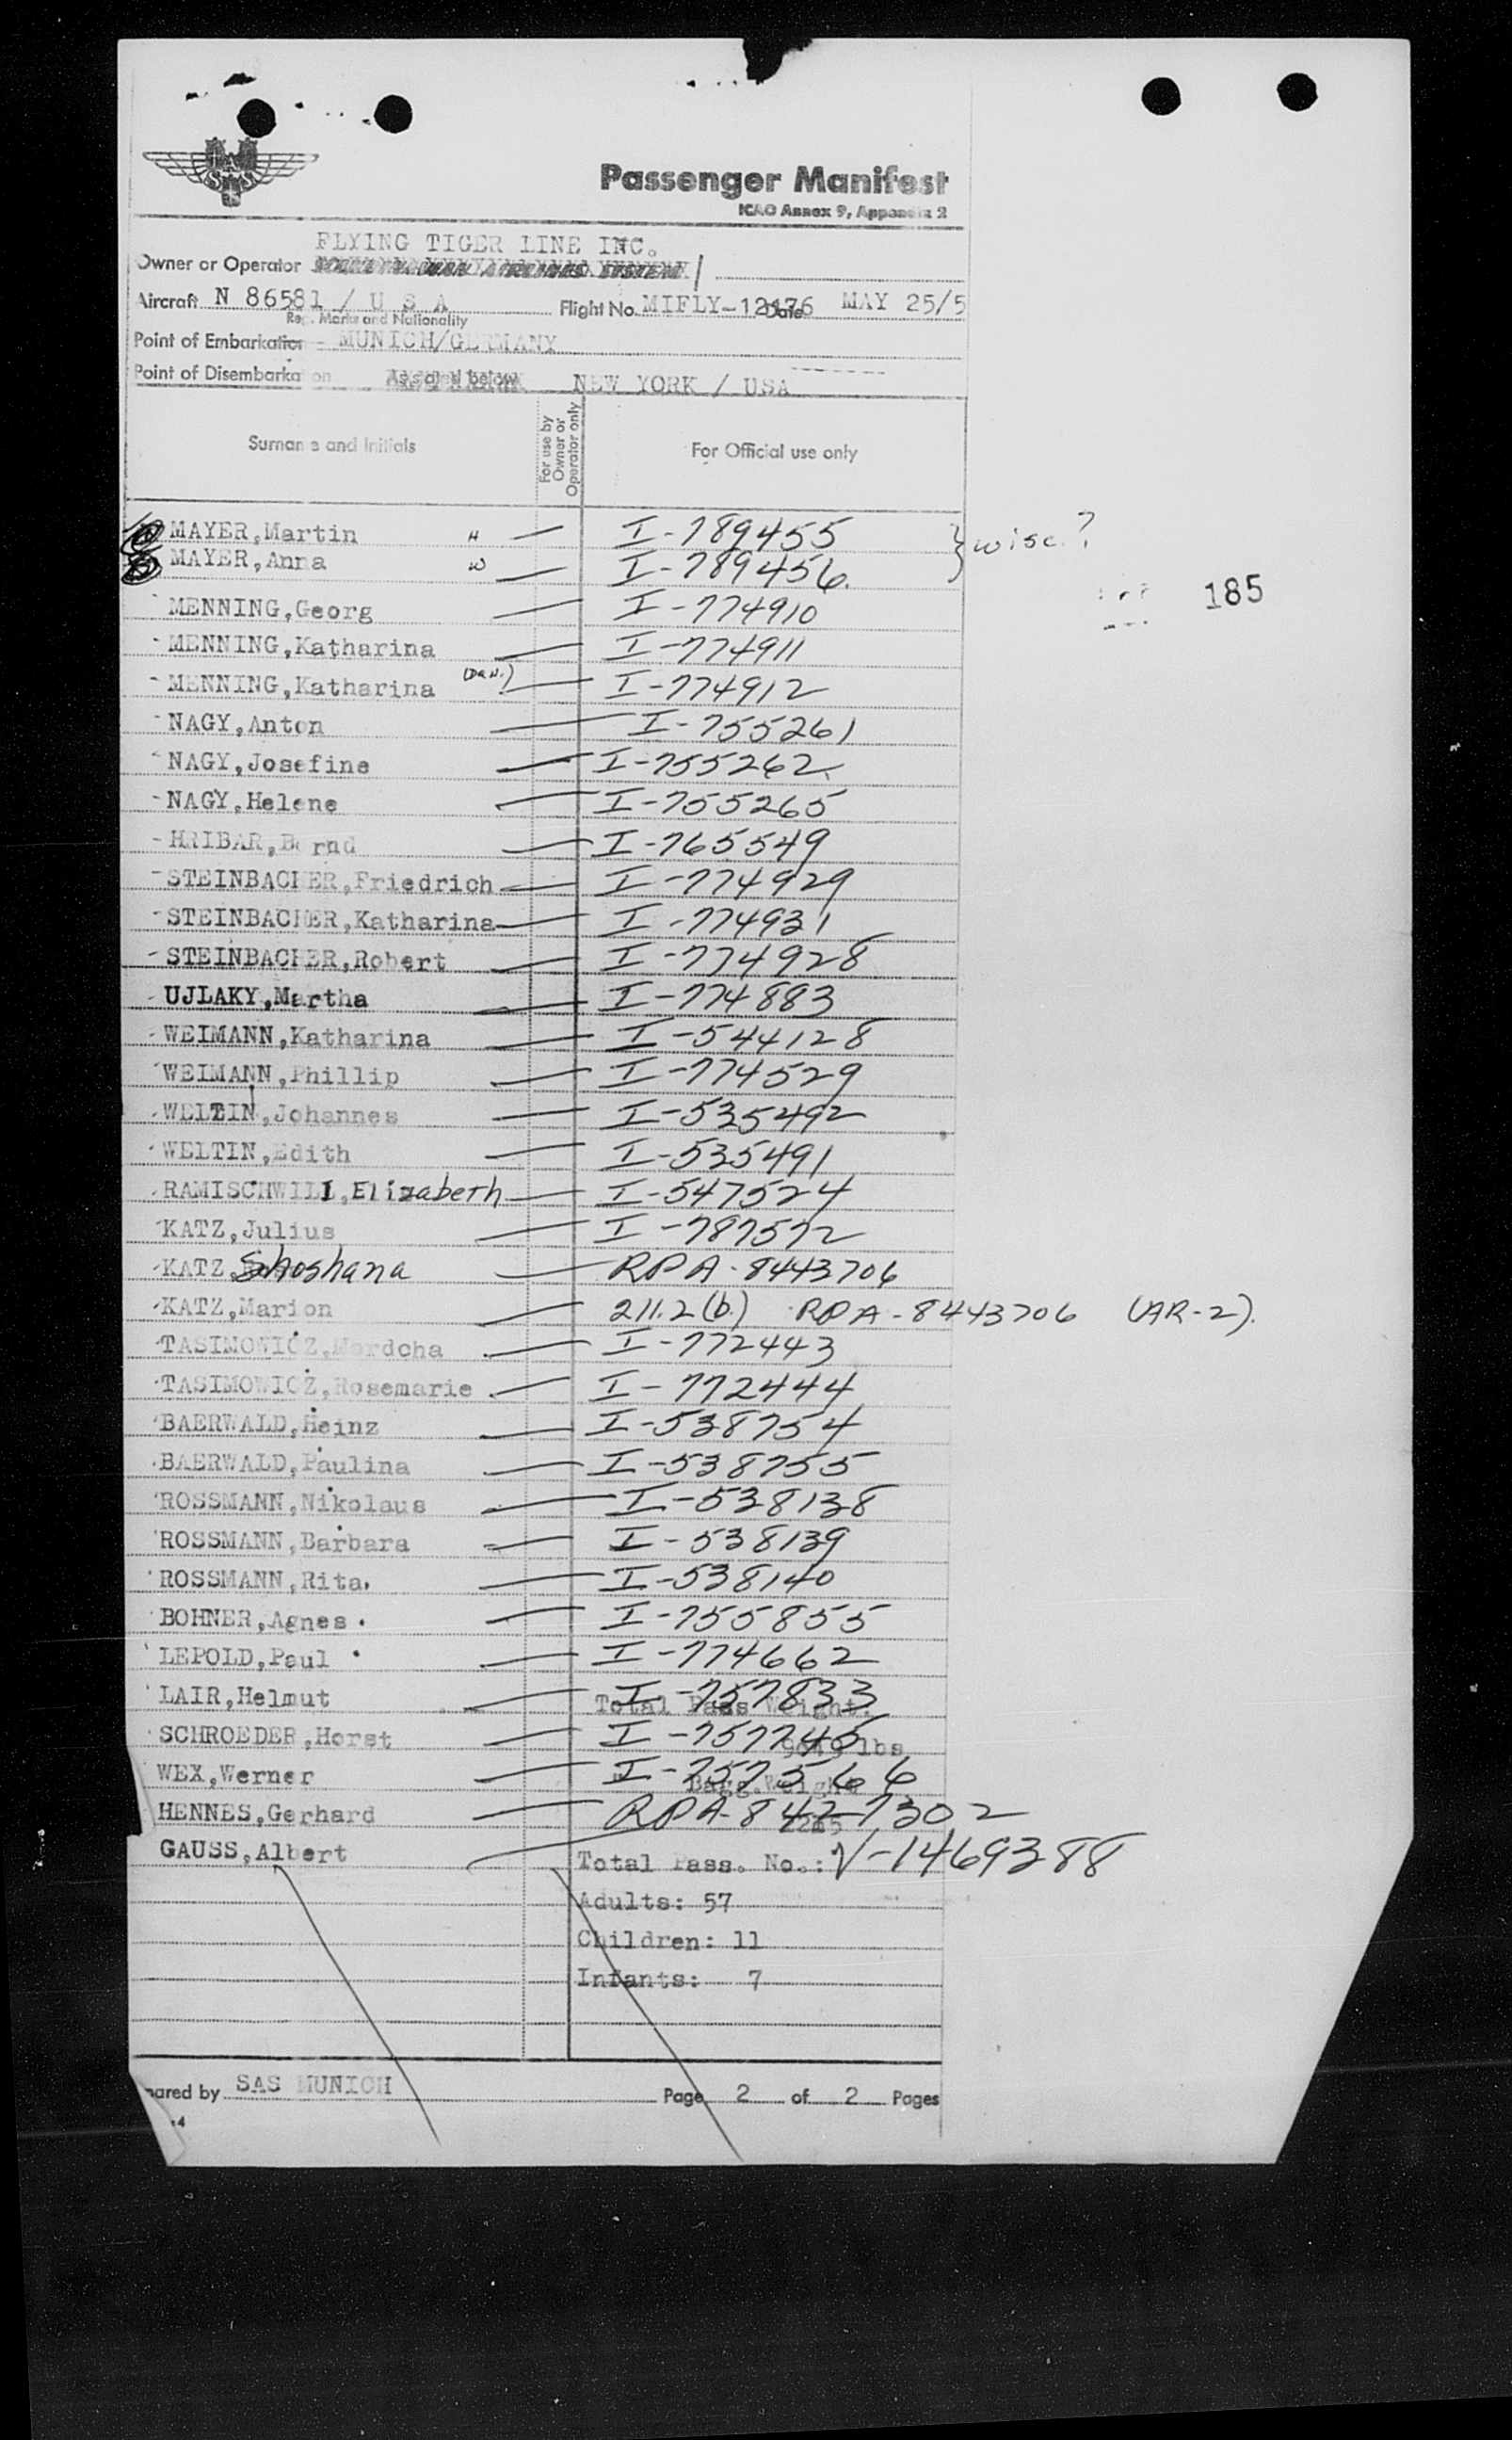 Passenger Manifest
ICAO Annex 9, Appendix 2
FLYING TIGER LINE INC.
Owner or Operator
Aircraft N 86581 / U S A Flight No. MIFLY-12476 Date MAY 25/5
Reg. Marks and Nationality
Point of Embarkation - MUNICH/GERMANY
Point of Disembarkation NEW YORK / USA
Surname and Initials For use by Owner or Operator only For Official use only
MAYER,Martin H — I-789455 } wisc.?
MAYER,Anna W — I-789456.
185
MENNING,Georg — I-774910
MENNING,Katharina — I-774911
MENNING,Katharina (Dau.) — I-774912
NAGY,Anton — I-755261
NAGY,Josefine — I-755262
NAGY,Helene — I-755265
HRIBAR,Bernd — I-765549
STEINBACHER,Friedrich — I-774929
STEINBACHER,Katharina — I-774931
STEINBACHER,Robert — I-774928
UJLAKY,Martha — I-774883
WEIMANN,Katharina — I-544128
WEIMANN,Phillip — I-774529
WELTIN,Johannes — I-535492
WELTIN,Edith — I-535491
RAMISCHWILI,Elizabeth — I-547524
KATZ,Julius — I-787572
KATZ Shoshana — RPA-8443706
KATZ,Marion — 211.2(b) RPA-8443706 (AR-2).
TASIMOWICZ,Mordcha — I-772443
TASIMOWICZ,Rosemarie — I-772444
BAERWALD,Heinz — I-538754
BAERWALD,Paulina — I-538755
ROSSMANN,Nikolaus — I-538138
ROSSMANN,Barbara — I-538139
ROSSMANN,Rita — I-538140
BOHNER,Agnes — I-755855
LEPOLD,Paul — I-774662
LAIR,Helmut — I-757833
Total Pass Weight.
SCHROEDER,Horst — I-757745
lbs
WEX,Werner — I-757566
Bagg.Weight
HENNES,Gerhard — RPA-8427302
GAUSS,Albert — Total Pass. No.: V-1469388
Adults: 57
Children: 11
Infants: 7
pared by SAS MUNICH Page 2 of 2 Pages